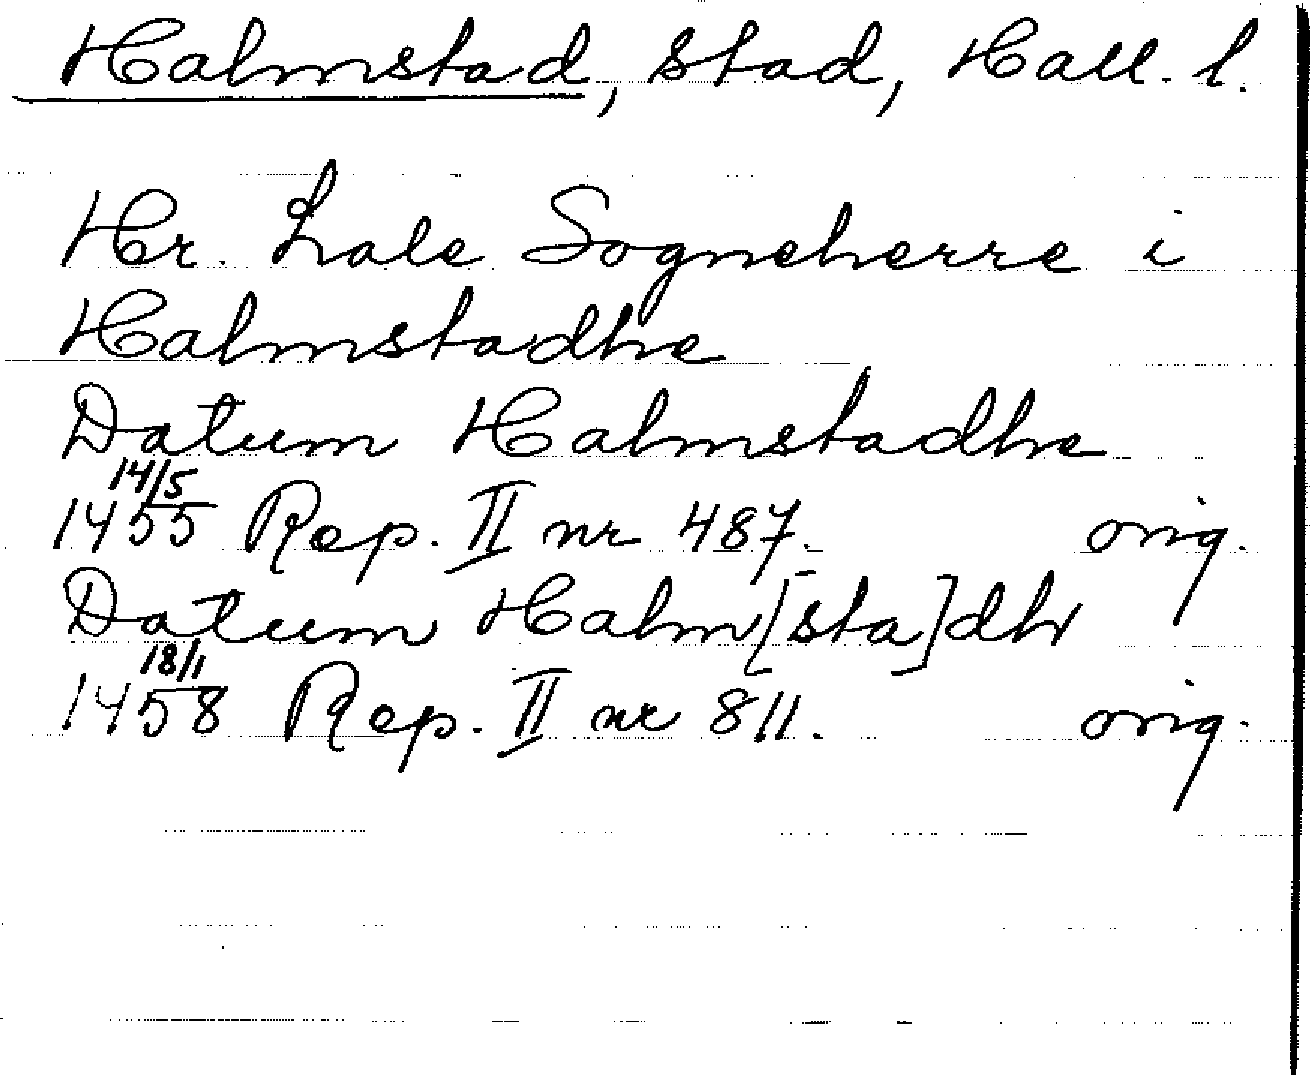 Halmstad, stad, Hall. l.
Hr. Lale Sogneherre i
Halmstadhe
Datum Halmstadhe
14/5
1455 Rep. II nr 487. orig.
Datum Halm[sta]dh
18/1
1458 Rep. II nr 811. orig.